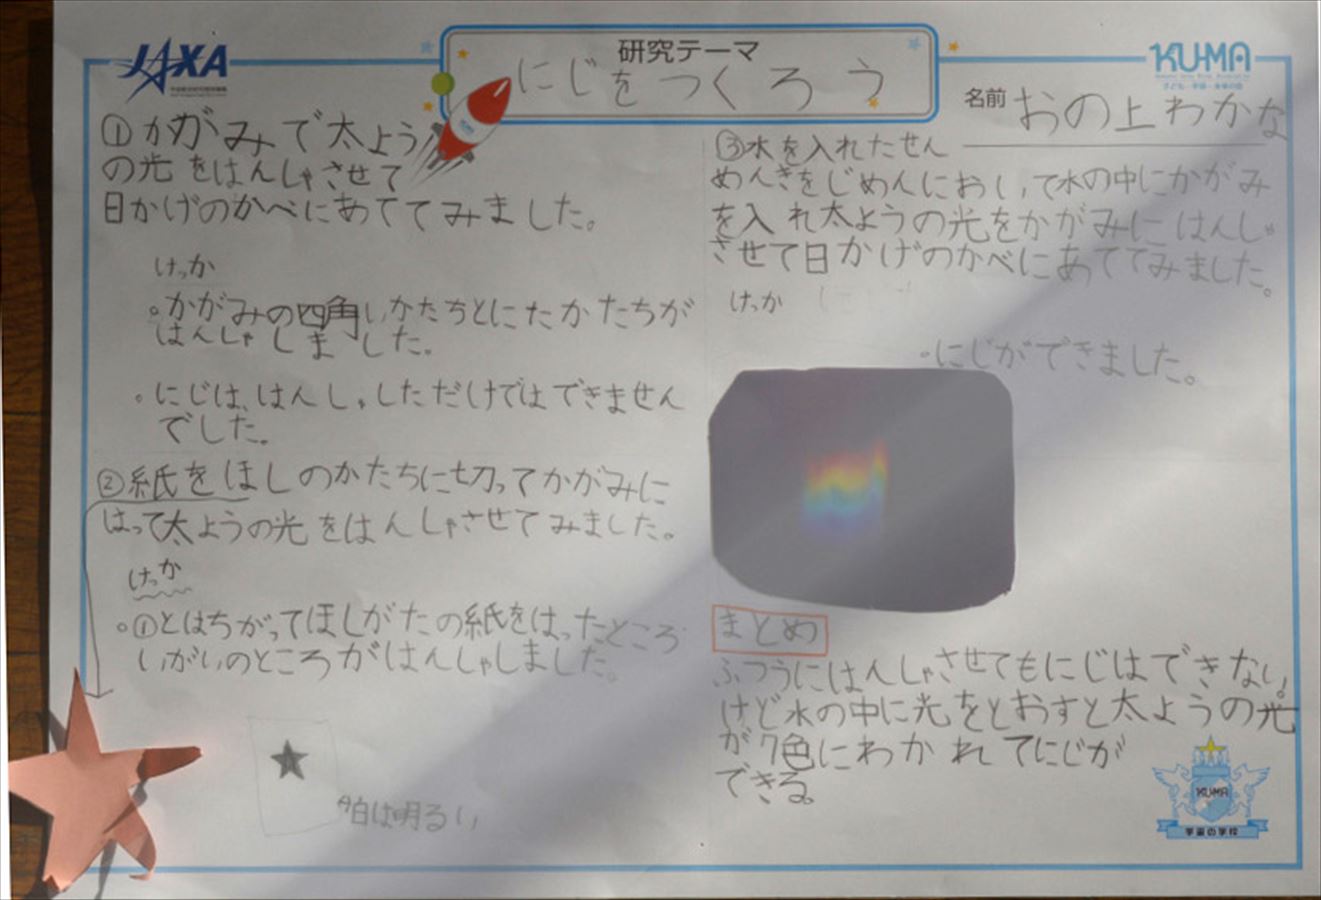 JAXA
研究テーマ
にじをつくろう
KUMA
名前 おの上わかな
①かがみで太よう
の光をはんしゃさせて
日かげのかべにあててみました。
けっか
。かがみの四角いかたちとにたかたちが
はんしゃしました。
・にじは、はんしゃしただけではできません
でした。
②紙をほしのかたちに切ってかがみに
はって太ようの光をはんしゃさせてみました。
けっか
。①とはちがってほしがたの紙をはったところ
いがいのところがはんしゃしました。
白は明るい
③水を入れたせん
めんきをじめんにおいて水の中にかがみ
を入れ太ようの光をかがみにはんしゃ
させて日かげのかべにあててみました。
けっか
・にじができました。
まとめ
ふつうにはんしゃさせてもにじはできない。
けど水の中に光をとおすと太ようの光
が7色にわかれてにじが
できる。
KUMA
宇宙の学校